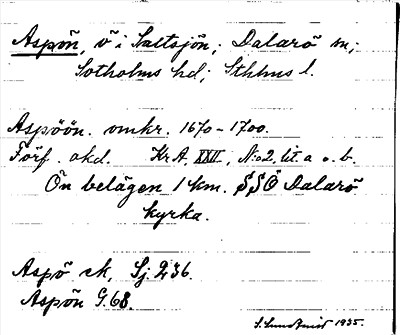 Aspön, ö i Saltsjön; Dalarö sn;
Sotholms hd; Sthlms l.
Aspöön. omkr. 1670-1700.
Förf. okd. Kr A. XXII, N:o 2, lit. a o. b.
Ön belägen 1 km. SSÖ Dalarö
kyrka.
Aspö ek, Sj 236.
Aspön G.68.
S. Lundqvist 1935.